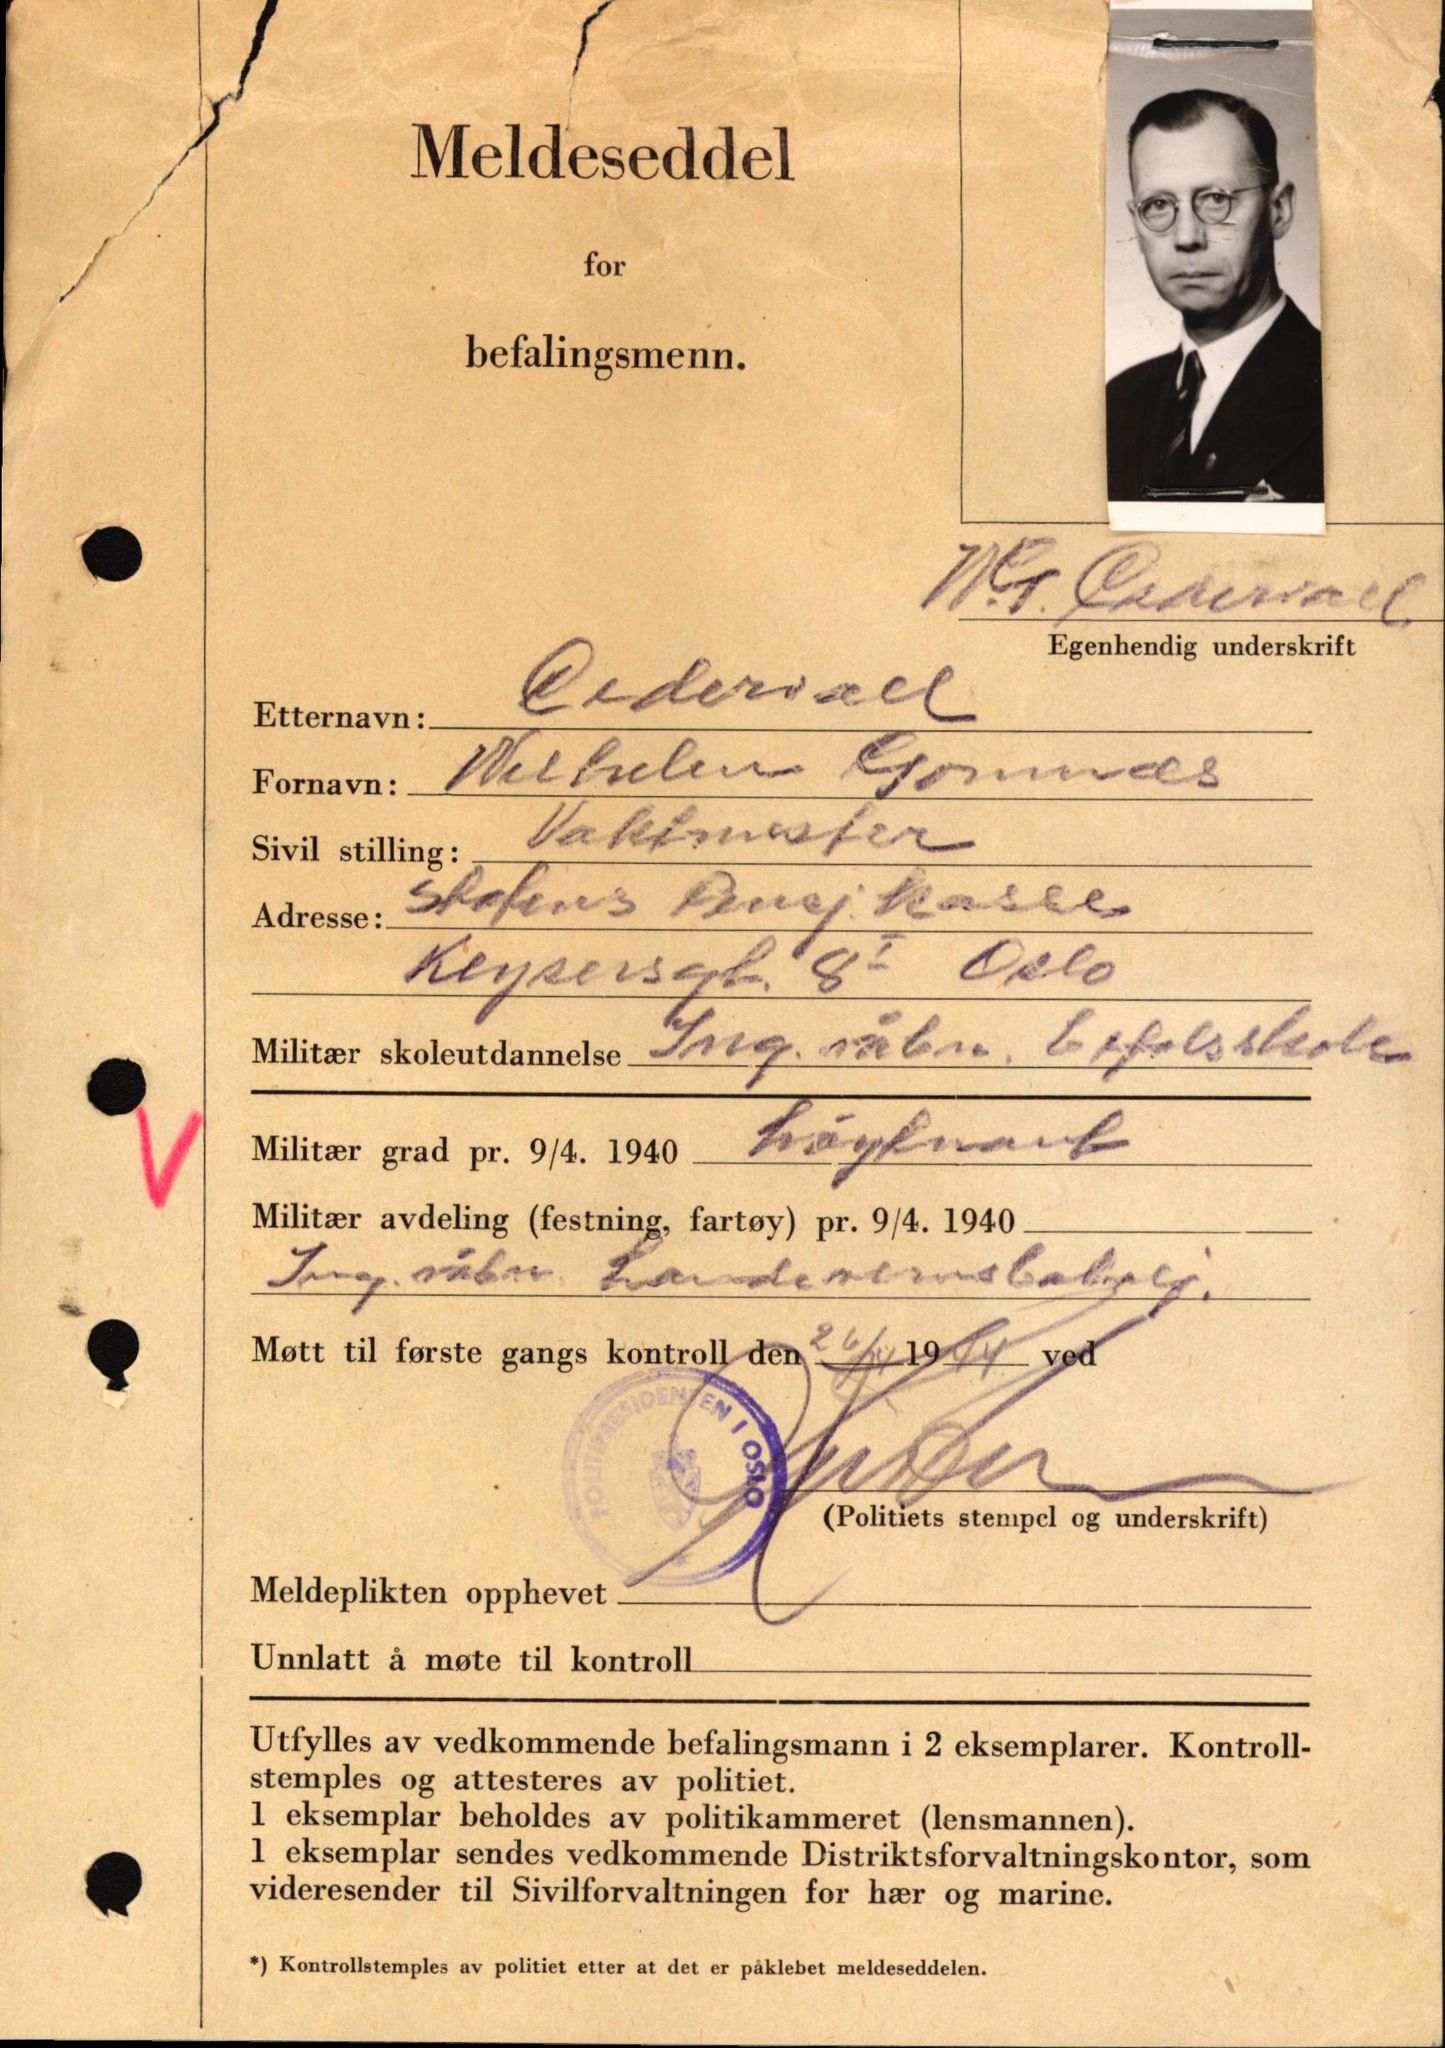 Meldeseddel
for
befalingsmenn.
W. G. Cedervall
Egenhendig underskrift
Etternavn: Cedervall
Fornavn: Wilhelm
Sivil stilling: Vaktmester
Adresse: Statens Pensj. kasse
Keysersgt. 8 I Oslo
Militær skoleutdannelse Ing. våbn. befalsskole
Militær grad pr. 9/4. 1940 Løytnant
Militær avdeling (festning, fartøy) pr. 9/4. 1940
Ing. våbn. Landevernsbatalj.
Møtt til første gangs kontroll den 26/ 1941 ved
POLITIPRESIDENTEN I OSLO
(Politiets stempel og underskrift)
Meldeplikten opphevet
Unnlatt å møte til kontroll
Utfylles av vedkommende befalingsmann i 2 eksemplarer. Kontroll-
stemples og attesteres av politiet.
1 eksemplar beholdes av politikammeret (lensmannen).
1 eksemplar sendes vedkommende Distriktsforvaltningskontor, som
videresender til Sivilforvaltningen for hær og marine.
*) Kontrollstemples av politiet etter at det er påklebet meldeseddelen.